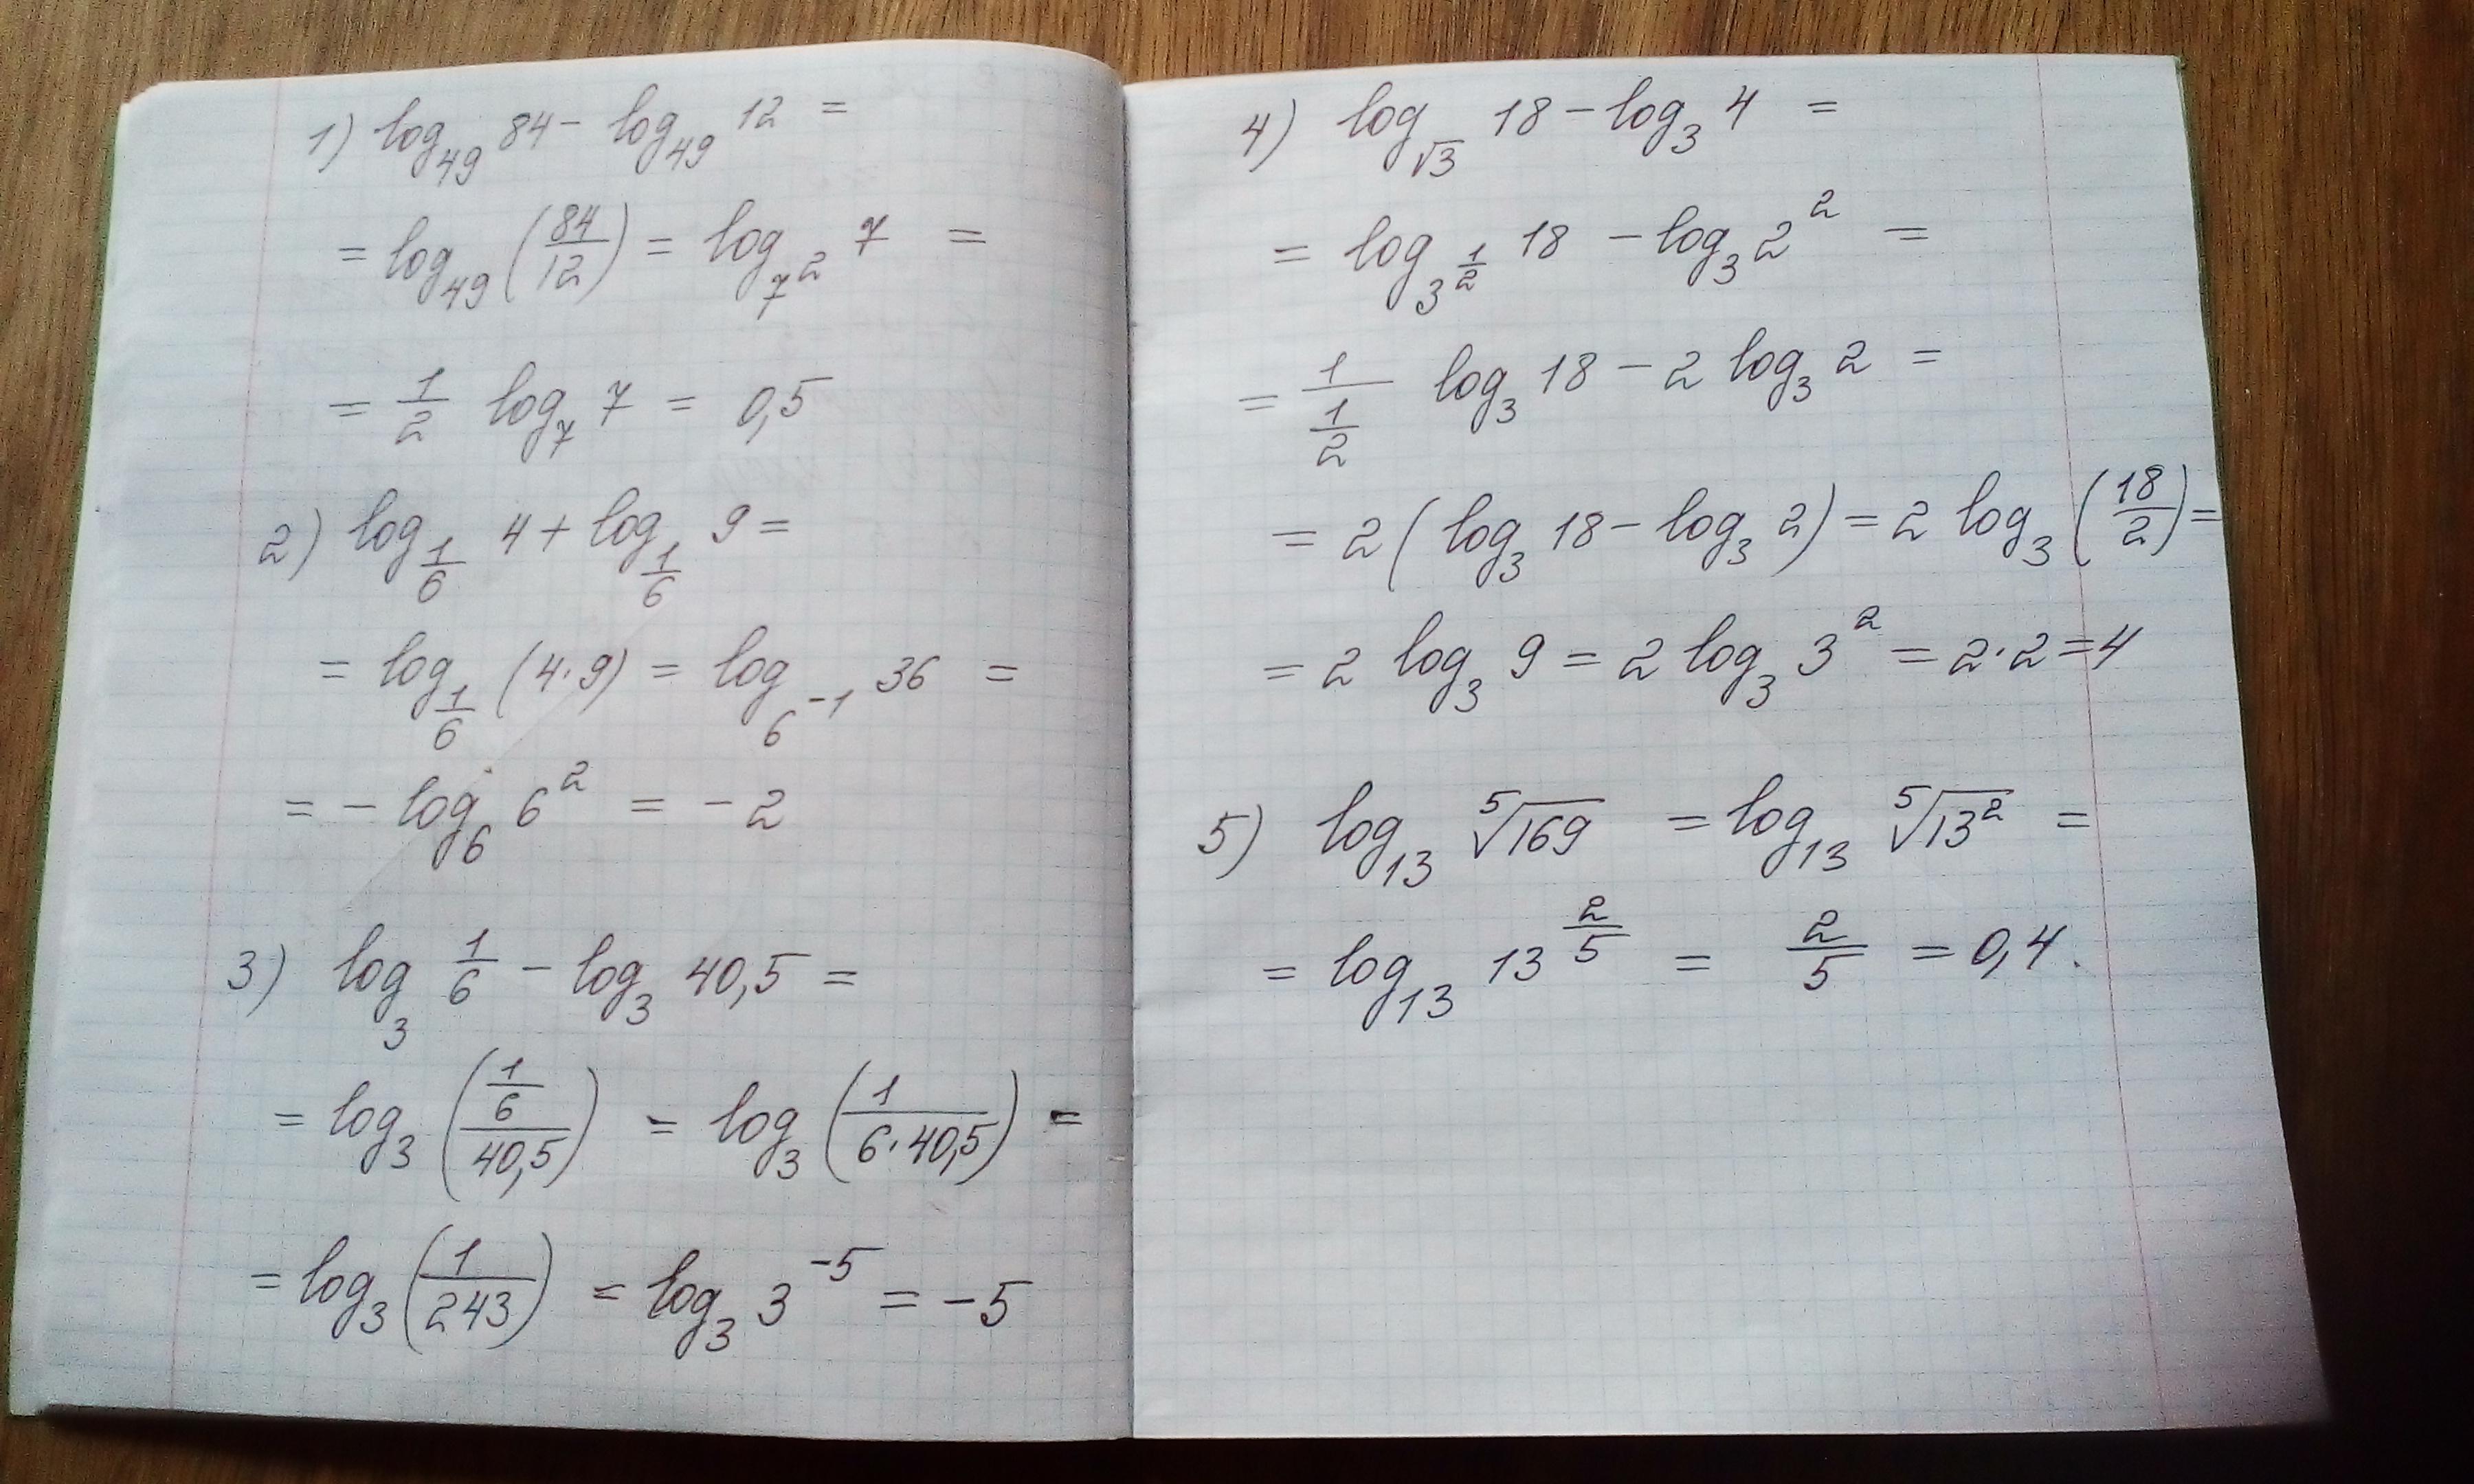 1) log₄₉ 84 - log₄₉ 12 =
= log₄₉ (84/12) = log_{7²} 7 =
= 1/2 log₇ 7 = 0,5
2) log_{1/6} 4 + log_{1/6} 9 =
= log_{1/6} (4·9) = log_{6⁻¹} 36 =
= - log₆ 6² = -2
3) log₃ 1/6 - log₃ 40,5 =
= log₃ ((1/6)/40,5) = log₃ (1/(6·40,5)) =
= log₃ (1/243) = log₃ 3⁻⁵ = -5
4) log_{√3} 18 - log₃ 4 =
= log_{3^{1/2}} 18 - log₃ 2² =
= 1/(1/2) log₃ 18 - 2 log₃ 2 =
= 2 (log₃ 18 - log₃ 2) = 2 log₃ (18/2) =
= 2 log₃ 9 = 2 log₃ 3² = 2·2 = 4
5) log₁₃ ⁵√169 = log₁₃ ⁵√13² =
= log₁₃ 13^{2/5} = 2/5 = 0,4.